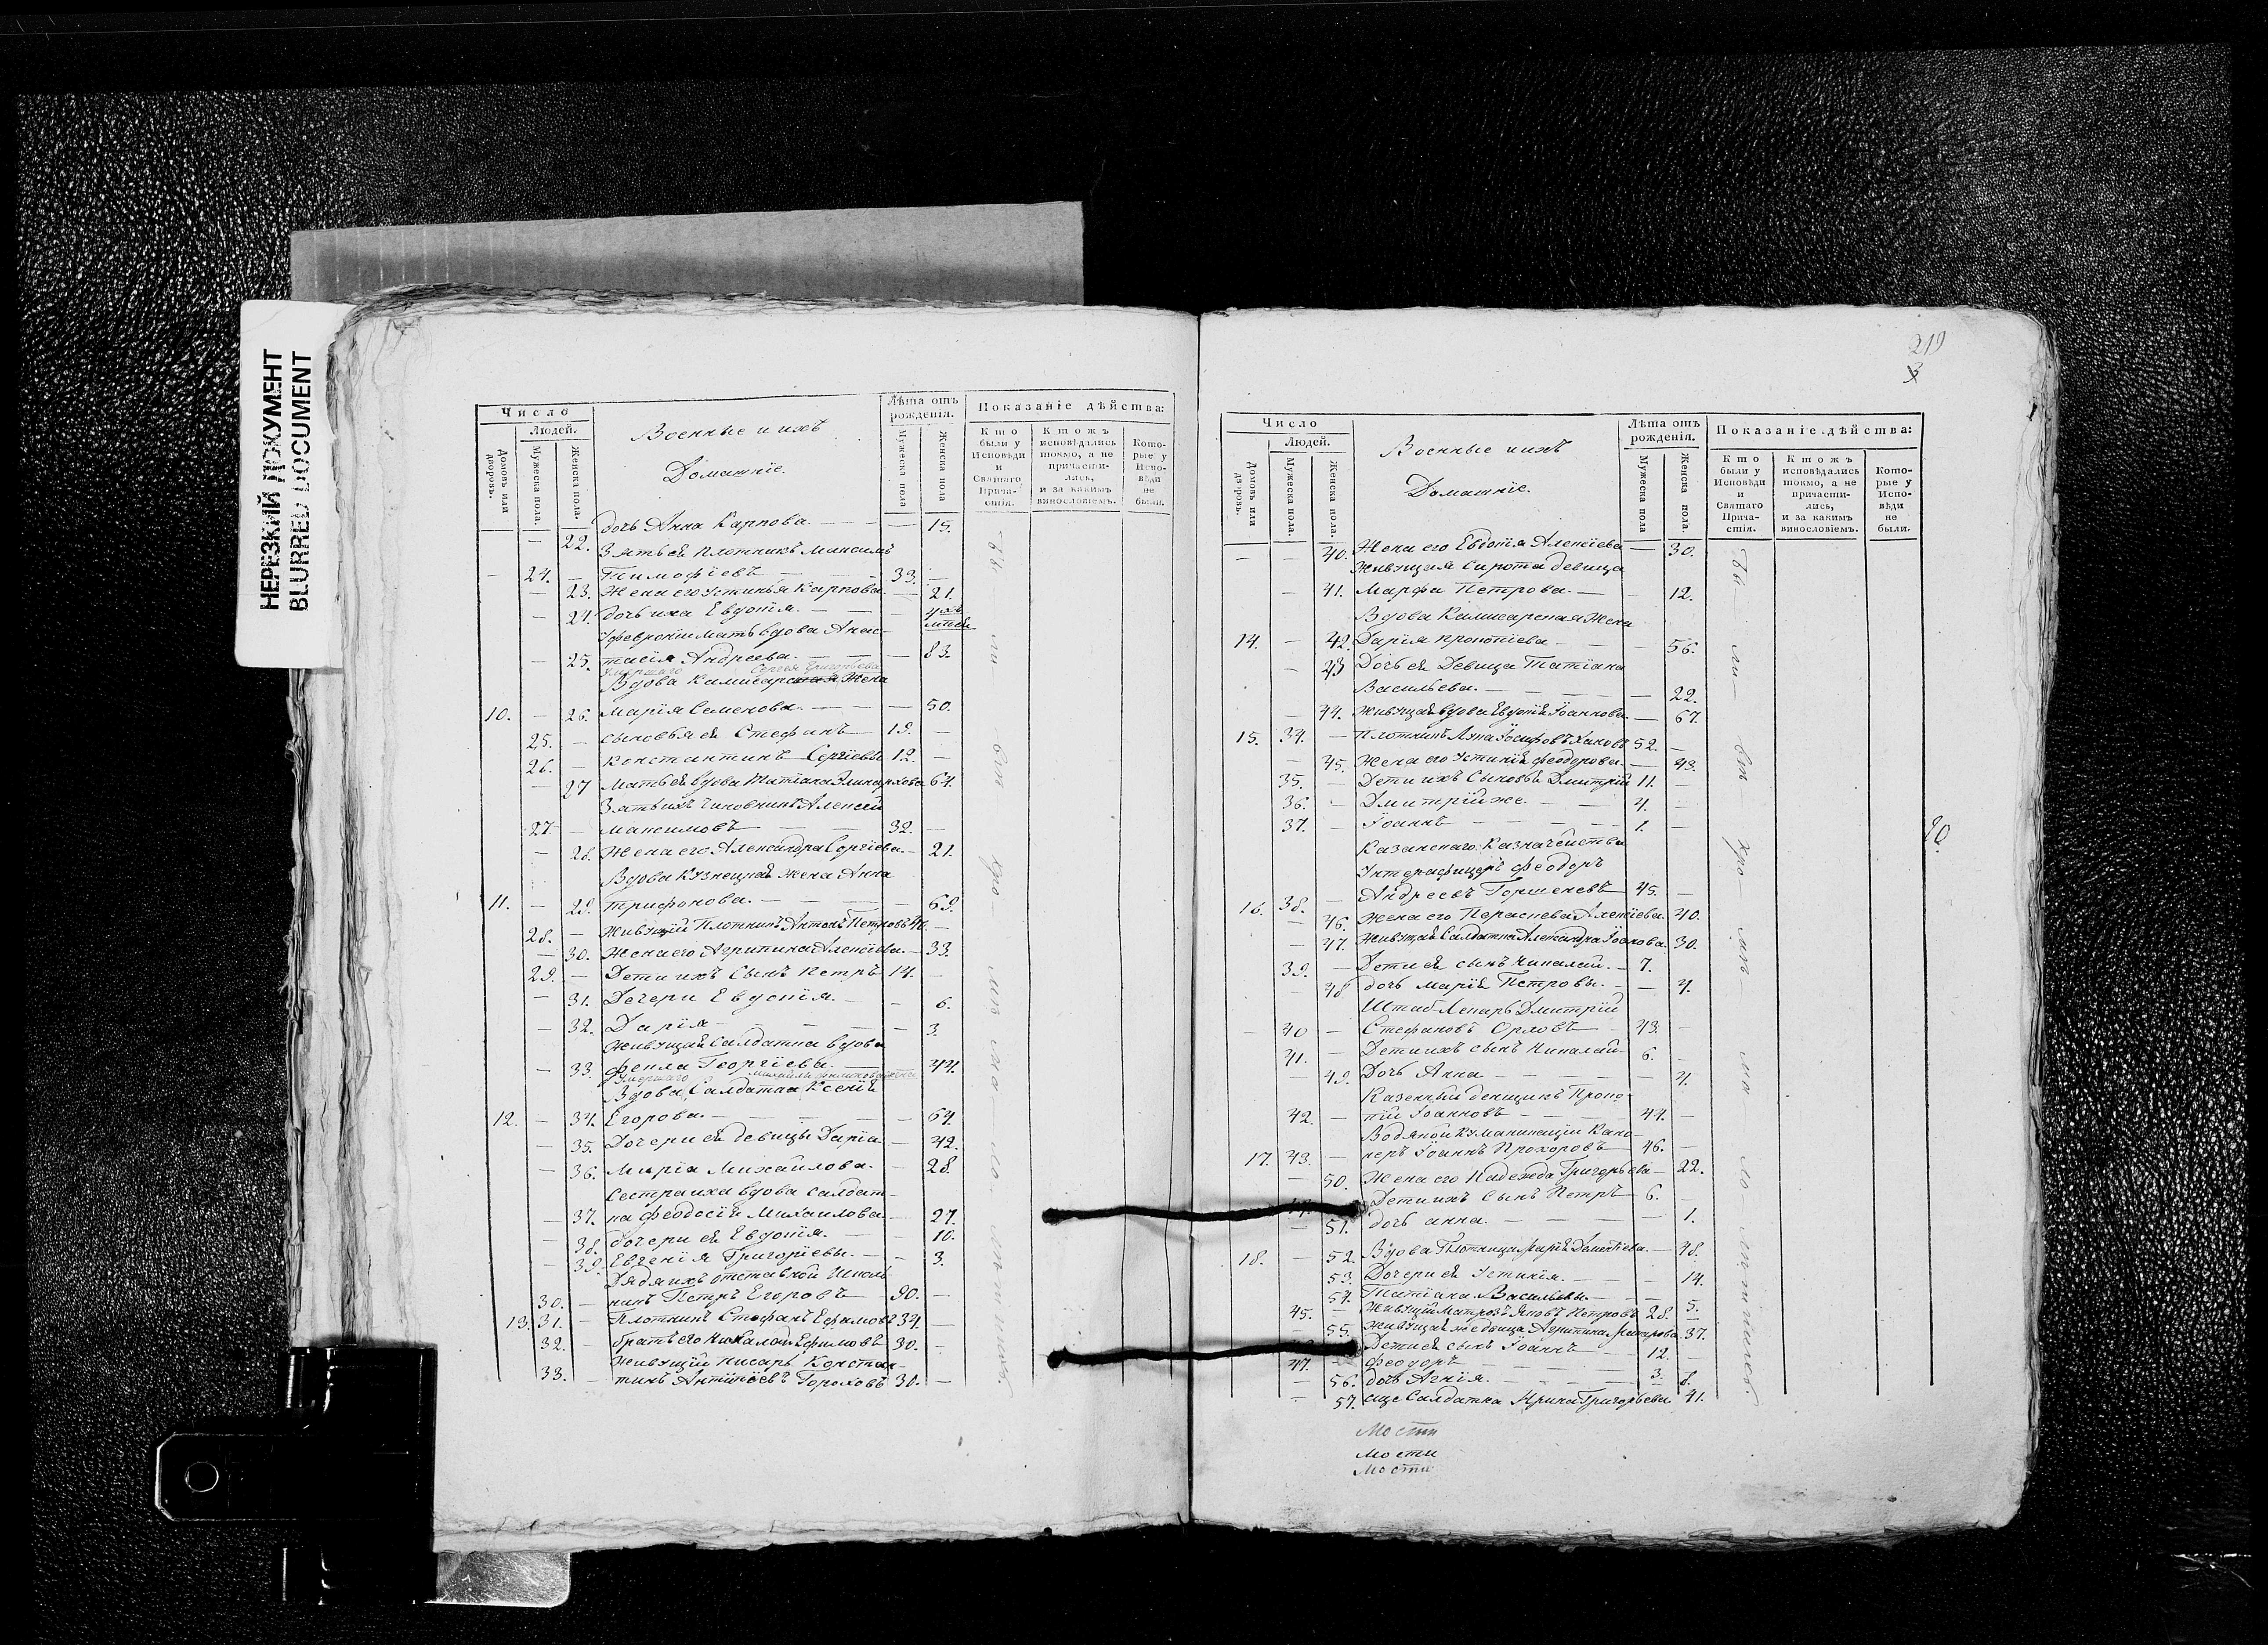 НЕРЕЗКИЙ ДОКУМЕНТ
BLURRED DOCUMENT
Число
Людей.
Домовъ или дворовъ.
Мужеска пола.
Женска пола.
Военные и ихъ
Домашніе.
Лѣта отъ рожденія.
Мужеска пола
Женска пола
Показаніе дѣйства:
Кто были у Исповѣди и Святаго Причастія.
Ктожъ исповѣдались токмо, а не причастились, и за какимъ винословіемъ.
Которые у Исповѣди не были.
— 22. дочь Анна Карпова — — — 15.
Зять ея плотникъ Максимъ
— 24. — Тимофѣевъ — — 33. —
— 23. Жена его Устинья Карпова — 21.
— 24. дочь ихъ Евдокія — —
Уфевронiи мать вдова Анас-
— 25. тасія Андреева — — 83.
Умершаго Сергея Григорьева
Вдова Комисарская Жена
10. — 26. Марія Семенова — — 50.
25. — сыновья ея Стефанъ 19. —
26. — Константинъ Сергіевы 12. —
— 27 Мать ея вдова Татіана 64.
Зять ихъ чиновникъ Алексей
27 — Максимовъ — 32. —
— 28. Жена его Александра Сергіева — 21.
Вдова Кузнецкая жена Анна
11. — 29. Трифонова — — 69.
28. — Живущій Плотникъ Антонъ Петровъ 40. —
— 30. Жена его Агрипина Алексіева — 33.
29. — Дети ихъ Сынъ Петръ 14. —
— 31. Дечери Евдокія — — 6.
— 32. Дарія — — 3.
Живущая солдатка вдова
— 33. Фекла Георгіева — 44.
Умершаго
Вдова Салдатка Ксенія
12. — 34. Егорова — — — 64.
— 35. Дочери ея девицы Дарія — 42.
— 36. Марія Михайлова — 28.
Сестра ихъ вдова салдат-
— 37. ка Феодосія Михаилова — 27.
— 38. дочери ея Евдокія — 10.
— 39. Евгенія Григоріевы — 3.
Дядя ихъ отставной
30. — Петръ Егоровъ 90. —
13. 31. — Плотникъ Стефанъ Ефимовъ 34. —
32. — братъ его Николай Ефимовъ 30. —
Живущій писарь Констан-
33. — тинъ Антипіевъ Гороховъ 30. —
219
3
Число
Людей.
Домовъ или дворовъ.
Мужеска пола.
Женска пола.
Военные и ихъ
Домашніе.
Лѣта отъ рожденія.
Мужеска пола
Женска пола.
Показаніе дѣйства:
Кто были у Исповѣди и Святаго Причастія.
Ктожъ исповѣдались токмо, а не причастились, и за какимъ винословіемъ.
Которые у Исповѣди не были.
— — 40. Жена его Евдокія Алексіева — 30.
Живущая сирота девица
— 41. Марфа Петрова — — 12.
Вдова Комисарская Жена
14. — 42. Дарія Прокопіева — — 56.
— 43 Дочь ея Девица Татіана
Васильева — — — 22.
— 44. Живущая вдова Евдокія Іоаннова — 67.
15. 34. — Плотникъ Лука Іосифовъ 52. —
— 45. Жена его Устинія Феодорова — 43.
35. — Дети ихъ Сыновья Дмитрій 11. —
36. — Дмитрій же — — 4. —
37. — Іоаннъ — — 1. —
Казанскаго Казначейства
Унтерофицеръ Феодоръ
16. 38. — Андреевъ Горшеневъ 45. —
— 46. Жена его Параскева Алексіева 40.
— 47. Живущая Салдатка Александра 30.
39. — Дети ея сынъ Николай — 7. —
— 48 дочь Марія Петровы — — 4.
Штаб-Лекарь Дмитрій
— 40 — Стефановъ Орловъ 43. —
41. — Дети ихъ сынъ Николай 6. —
— 49. Дочь Анна — — — 4.
Казенный денщикъ Проко-
42. — пій Іоанновъ — 44. —
Водяной Камуникаціи Кано-
17. 43. — неръ Іоаннъ Прохоровъ 46. —
— 50. Жена его Надежда Григорьева — 22.
Дети ихъ Сынъ Петръ 6. —
— 51. дочь анна — — — 1.
18. — 52. Вдова Плотница Марія Дементіева — 48.
— 53. Дочери ея Устинія — — 14.
54. Татіана Васильевы — — 5.
45. — Живущій матрозъ Яковъ Петровъ 28. —
— 55. Живущая же вдовица Агрипина Макарова 37.
Дети ея сынъ Іоаннъ 12. —
47. Феодоръ — — 3. —
— 56. дочь Агнія — — — 8.
— 57. еще Салдатка Ирина Григорьева 41.
20
Мости
Мости
Мости